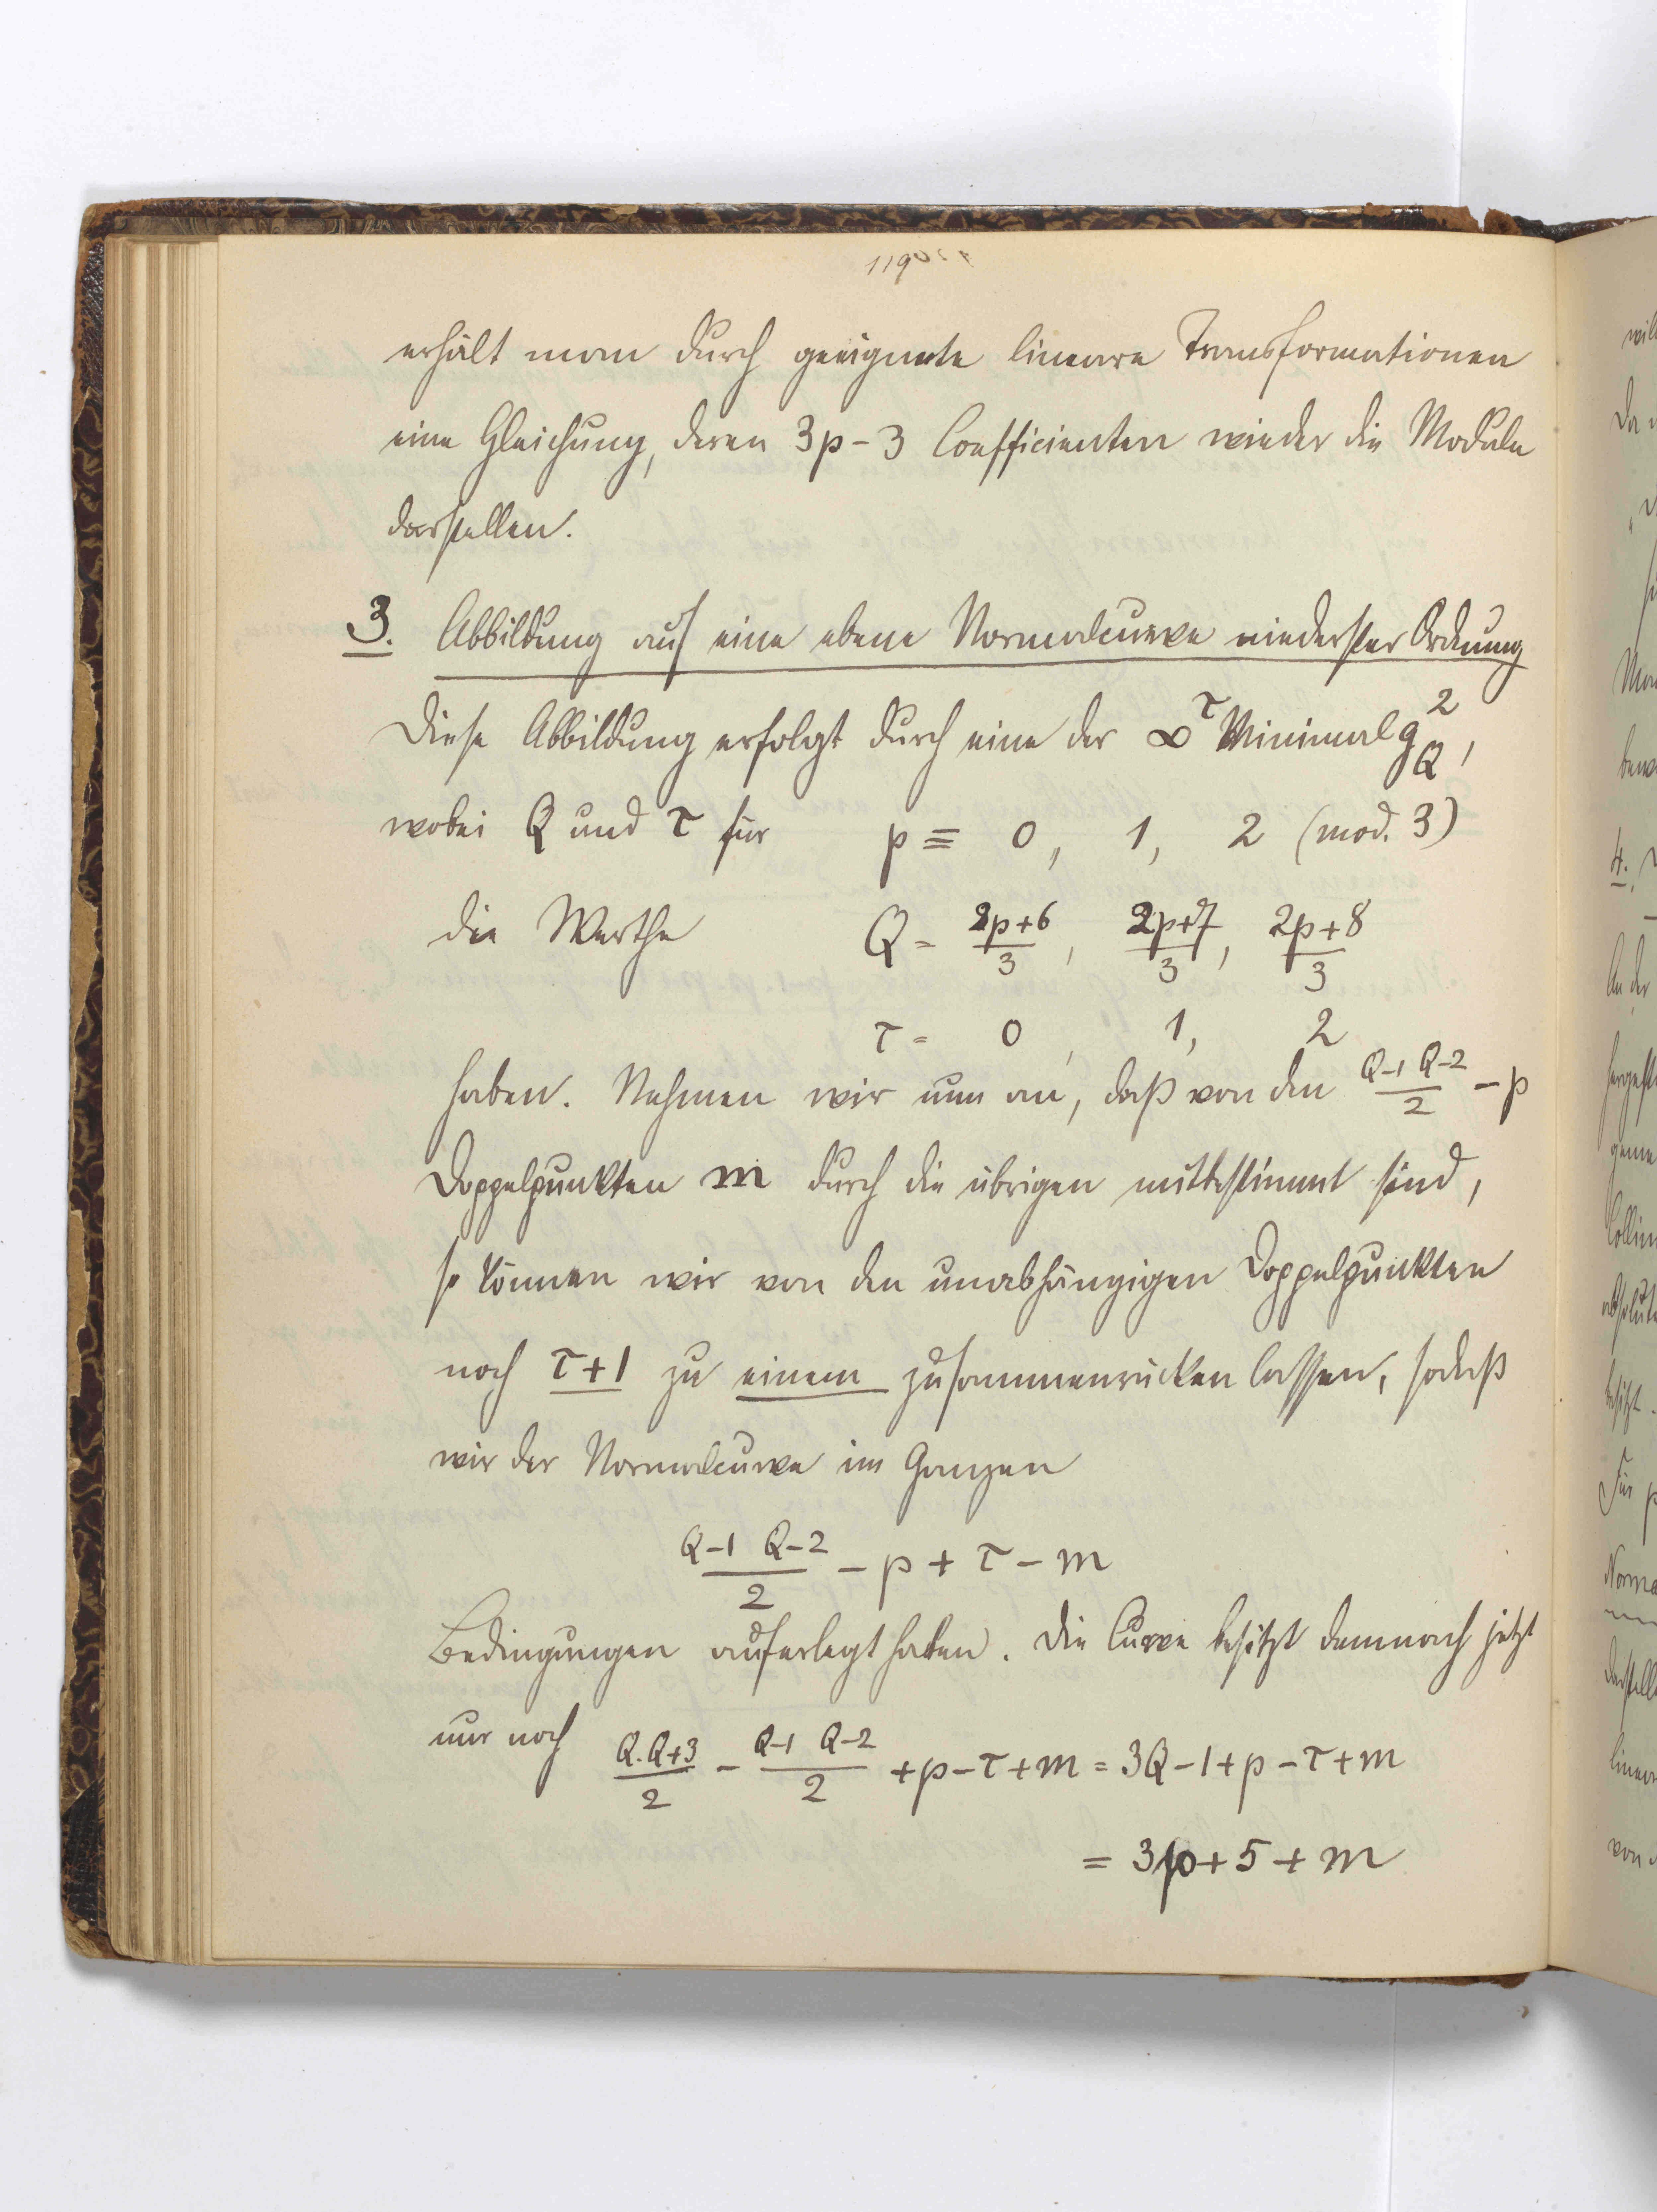 119
erhält man durch geeignete lineare Transformationen
eine Gleichung, deren 3p-3 Coefficienten wieder die Moduln
darstellen.
3. Abbildung auf eine ebene Normalcurve niederster Ordnung
Diese Abbildung erfolgt durch eine der ∞^τ Minimal g_Q^2,
wobei Q und τ für p ≡ 0, 1, 2 (mod. 3)
die Werthe Q = (2p+6)/3, (2p+7)/3, (2p+8)/3
τ = 0, 1, 2
haben. Nehmen wir nun an, daß von den (Q-1 Q-2)/2 - p
Doppelpunkten m durch die übrigen mitbestimmt sind,
so können wir von den unabhängigen Doppelpunkten
noch τ+1 zu einem zusammenrücken lassen, sodaß
wir der Normalcurve im Ganzen
(Q-1 Q-2)/2 - p + τ - m
Bedingungen auferlegt haben. Die Curve besitzt demnach jetzt
nur noch (Q.Q+3)/2 - (Q-1 Q-2)/2 + p - τ + m = 3Q - 1 + p - τ + m
= 3p + 5 + m